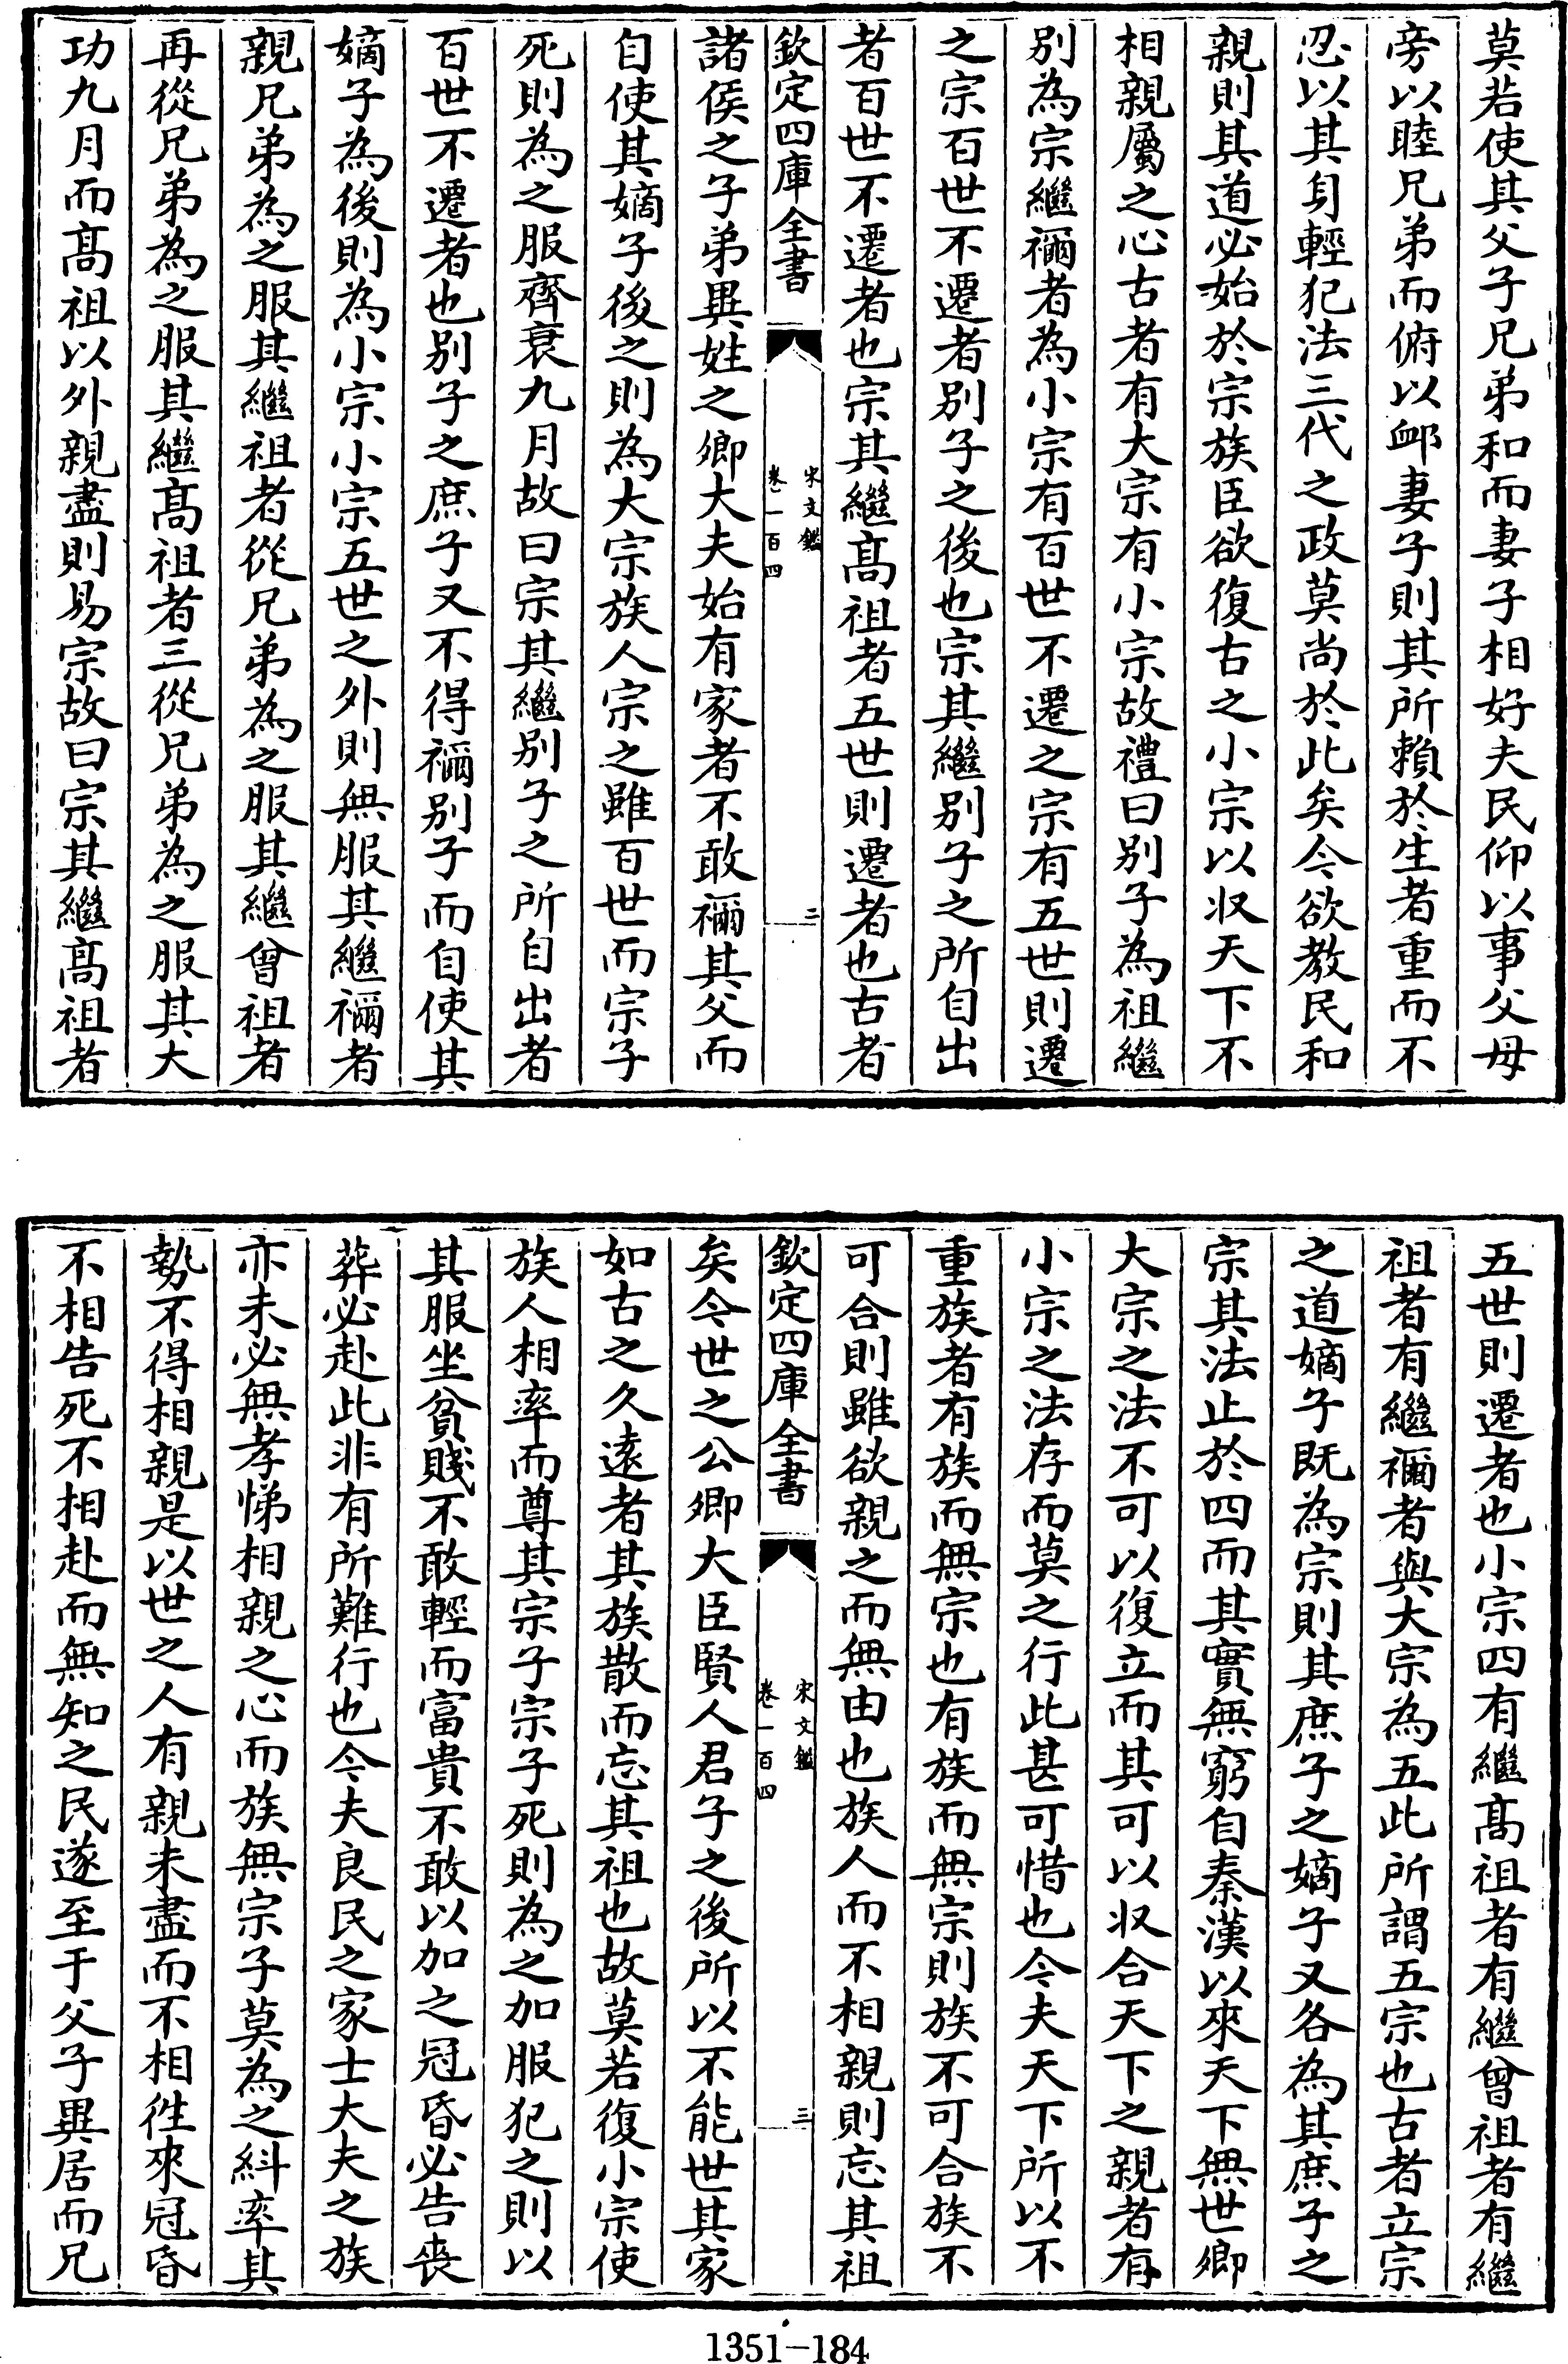 莫若使其父子兄弟和而妻子相好夫民仰以事父母
旁以睦兄弟而俯以䘏妻子則其所賴於生者重而不
忍以其身輕犯法三代之政莫尚於此矣今欲教民和
親則其道必始於宗族臣欲復古之小宗以收天下不
相親屬之心古者有大宗有小宗故禮曰別子為祖繼
別為宗繼禰者為小宗有百世不遷之宗有五世則遷
之宗百世不遷者別子之後也宗其繼別子之所自出
者百世不遷者也宗其繼髙祖者五世則遷者也古者
欽定四庫全書
宋文鑑
卷一百四
三
諸侯之子弟異姓之卿大夫始有家者不敢禰其父而
自使其嫡子後之則為大宗族人宗之雖百世而宗子
死則為之服齊衰九月故曰宗其繼別子之所自出者
百世不遷者也別子之庶子又不得禰別子而自使其
嫡子為後則為小宗小宗五世之外則無服其繼禰者
親兄弟為之服其繼祖者從兄弟為之服其繼曾祖者
再從兄弟為之服其繼髙祖者三從兄弟為之服其大
功九月而髙祖以外親盡則易宗故曰宗其繼髙祖者
五世則遷者也小宗四有繼髙祖者有繼曾祖者有繼
祖者有繼禰者與大宗為五此所謂五宗也古者立宗
之道嫡子既為宗則其庶子之嫡子又各為其庶子之
宗其法止於四而其實無窮自秦漢以來天下無世卿
大宗之法不可以復立而其可以收合天下之親者有
小宗之法存而莫之行此甚可惜也今夫天下所以不
重族者有族而無宗也有族而無宗則族不可合族不
可合則雖欲親之而無由也族人而不相親則忘其祖
欽定四庫全書
宋文鑑
卷一百四
三
矣今世之公卿大臣賢人君子之後所以不能世其家
如古之久遠者其族散而忘其祖也故莫若復小宗使
族人相率而尊其宗子宗子死則為之加服犯之則以
其服坐貧賤不敢輕而富貴不敢以加之冠昏必告喪
葬必赴此非有所難行也今夫良民之家士大夫之族
亦未必無孝悌相親之心而族無宗子莫為之糾率其
勢不得相親是以世之人有親未盡而不相徃來冠昏
不相告死不相赴而無知之民遂至于父子異居而兄
1351-184